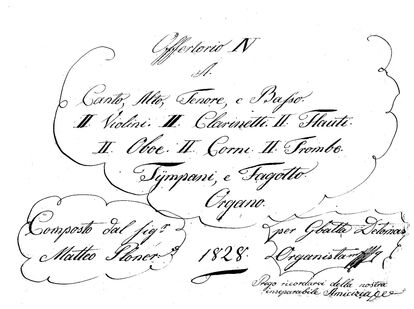 Offertorio IV
A.
Canto, Alto, Tenore, e Basso.
II. Violini. II. Clarinetti. II. Flauti.
II. Oboe. II. Corni. II. Trombe.
Tÿmpani, e Fagotto.
Organo.
Composto dal Sigr.
Matteo
1828.
per Gbatta
Organista
Prego ricordarsi della nostra
inseparabile Amicizia